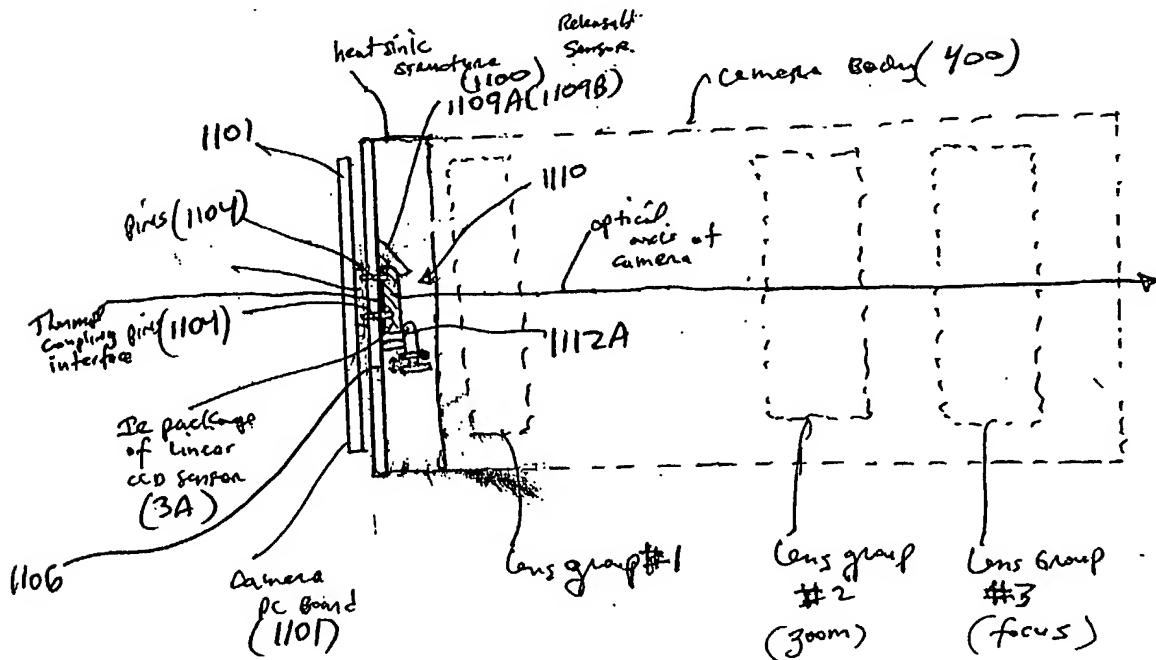 Sensor
heatsink
structure
(1100)
1109A (1109B)
Camera Body (400)
1101
1110
pins (1104)
optical
axis of
camera
Thermal
coupling pins (1104)
interface
1112A
IC package
of linear
CCD sensor
(3A)
1106
Camera
PC Board
(1101)
Lens group #1
Lens group
#2
(zoom)
Lens Group
#3
(focus)